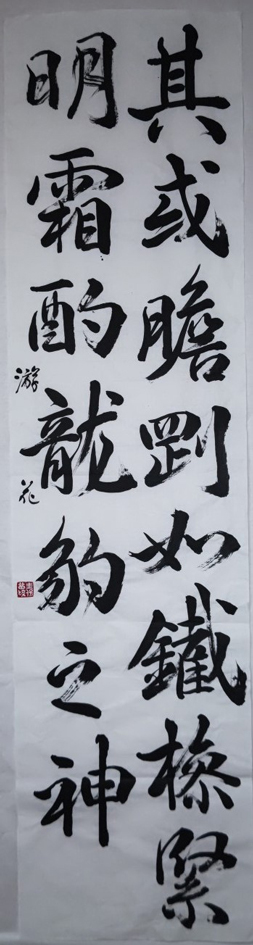 其或瞻剛如鐵檢緊
明霜酌龍豹之神
游花